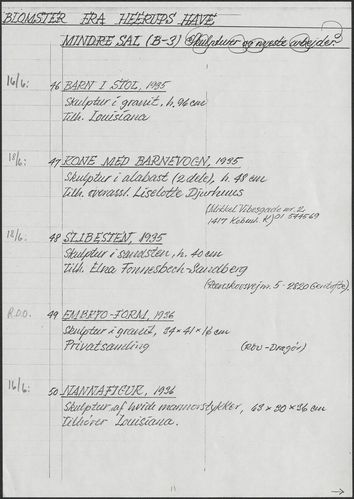 BLOMSTER FRA HEERUPS HAVE
MINDRE SAL (B-3) Skulpturer og nyeste arbejder
16/6: 46 BARN I STOL, 1935
Skulptur i granit, h. 96 cm
Tilh. Louisiana
18/6: 47 KONE MED BARNEVOGN, 1935
Skulptur i alabast (2 dele), h. 48 cm
Tilh. overassl. Liselotte Djurhuus
(Mikkel Vibesgade nr. 2
1417 Københ. K) 01 544569
18/6: 48 SLIBESTEN, 1935
Skulptur i sandsten, h. 40 cm
Tilh. Elna Fonnesbech-Sandberg
5 - 2820 Gentofte)
R.D.O. 49 EMBRYO-FORM, 1936
Skulptur i granit, 34 × 41 × 16 cm
Privatsamling
16/6: 50 MANNAFIGUR, 1936
Skulptur af hvide marmorstykker, 63 × 30 × 36 cm
Tilhører Louisiana.
11 →